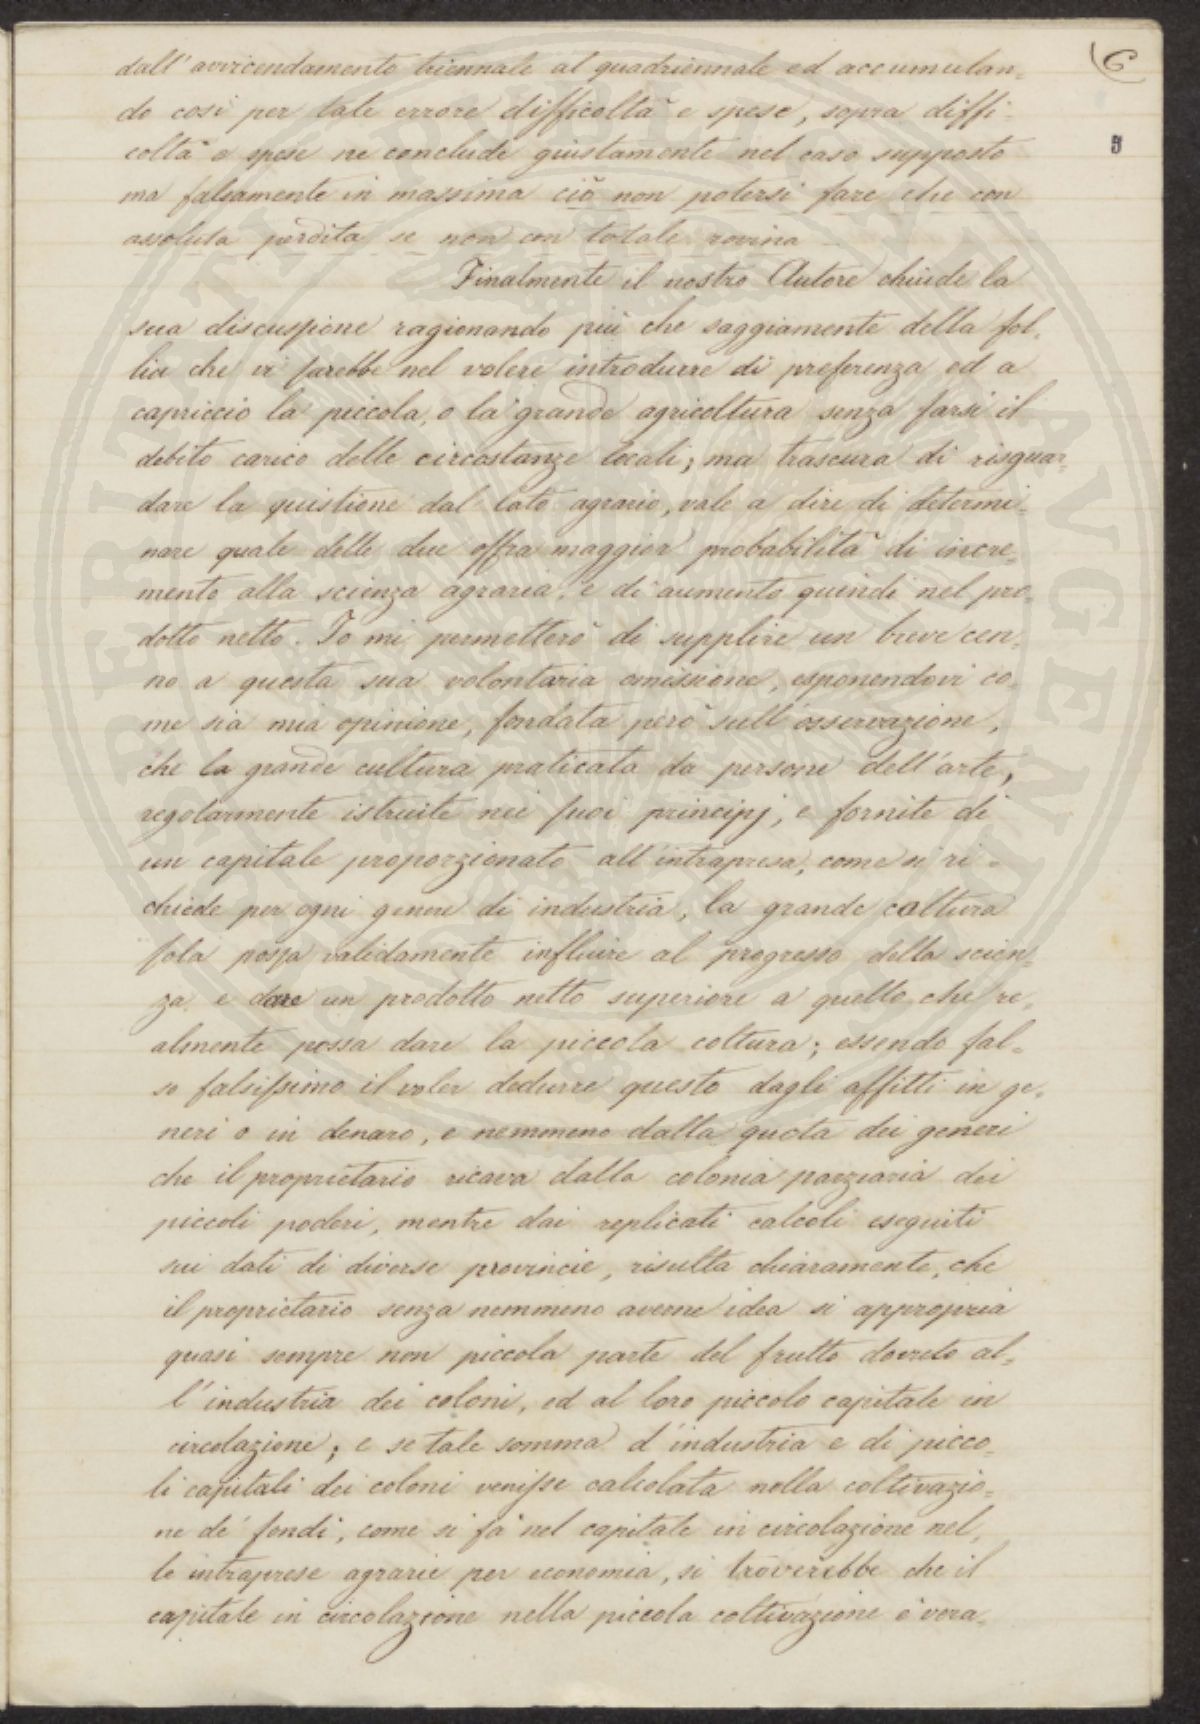 6
9
dall'avvicendamento triennale al quadriennale ed accumulan-
do così per tale errore difficoltà e spese, sopra diffi-
coltà e spese ne conclude giustamente nel caso supposto
ma falsamente in massima ciò non potersi fare che con
assoluta perdita se non con totale rovina
Finalmente il nostro Autore chiude la
sua discussione ragionando più che saggiamente della fol-
lia che vi sarebbe nel volere introdurre di preferenza ed a
capriccio la piccola, o la grande agricoltura senza farsi il
debito carico delle circostanze locali; ma trascura di risguar-
dare la quistione dal lato agrario, vale a dire di determi-
nare quale delle due offra maggior probabilità di incre-
mento alla scienza agraria, e di aumento quindi nel pro-
dotto netto. Io mi permetterò di supplire un breve cen-
no a questa sua volontaria omissione, esponendovi co-
me sia mia opinione, fondata però sull'osservazione,
che la grande cultura praticata da persone dell'arte,
regolarmente istruite nei suoi principj, e fornite di
un capitale proporzionato all'intrapresa, come si ri-
chiede per ogni genere di industria, la grande coltura
sola possa validamente influire al progresso della scien-
za e dare un prodotto netto superiore a quello che re-
almente possa dare la piccola coltura; essendo fal-
so falsissimo il voler dedurre questo dagli affitti in ge-
neri o in denaro, e nemmeno dalla quota dei generi
che il proprietario ricava dalla colonia parziaria dei
piccoli poderi, mentre dai replicati calcoli eseguiti
sui dati di diverse provincie, risulta chiaramente, che
il proprietario senza nemmeno averne idea si appropria
quasi sempre non piccola parte del frutto dovuto al-
l'industria dei coloni, ed al loro piccolo capitale in
circolazione; e se tale somma d'industria e di picco-
li capitali dei coloni venisse calcolata nella coltivazio-
ne de' fondi, come si fa nel capitale in circolazione nel-
le intraprese agrarie per economia, si troverebbe che il
capitale in circolazione nella piccola coltivazione è vera-